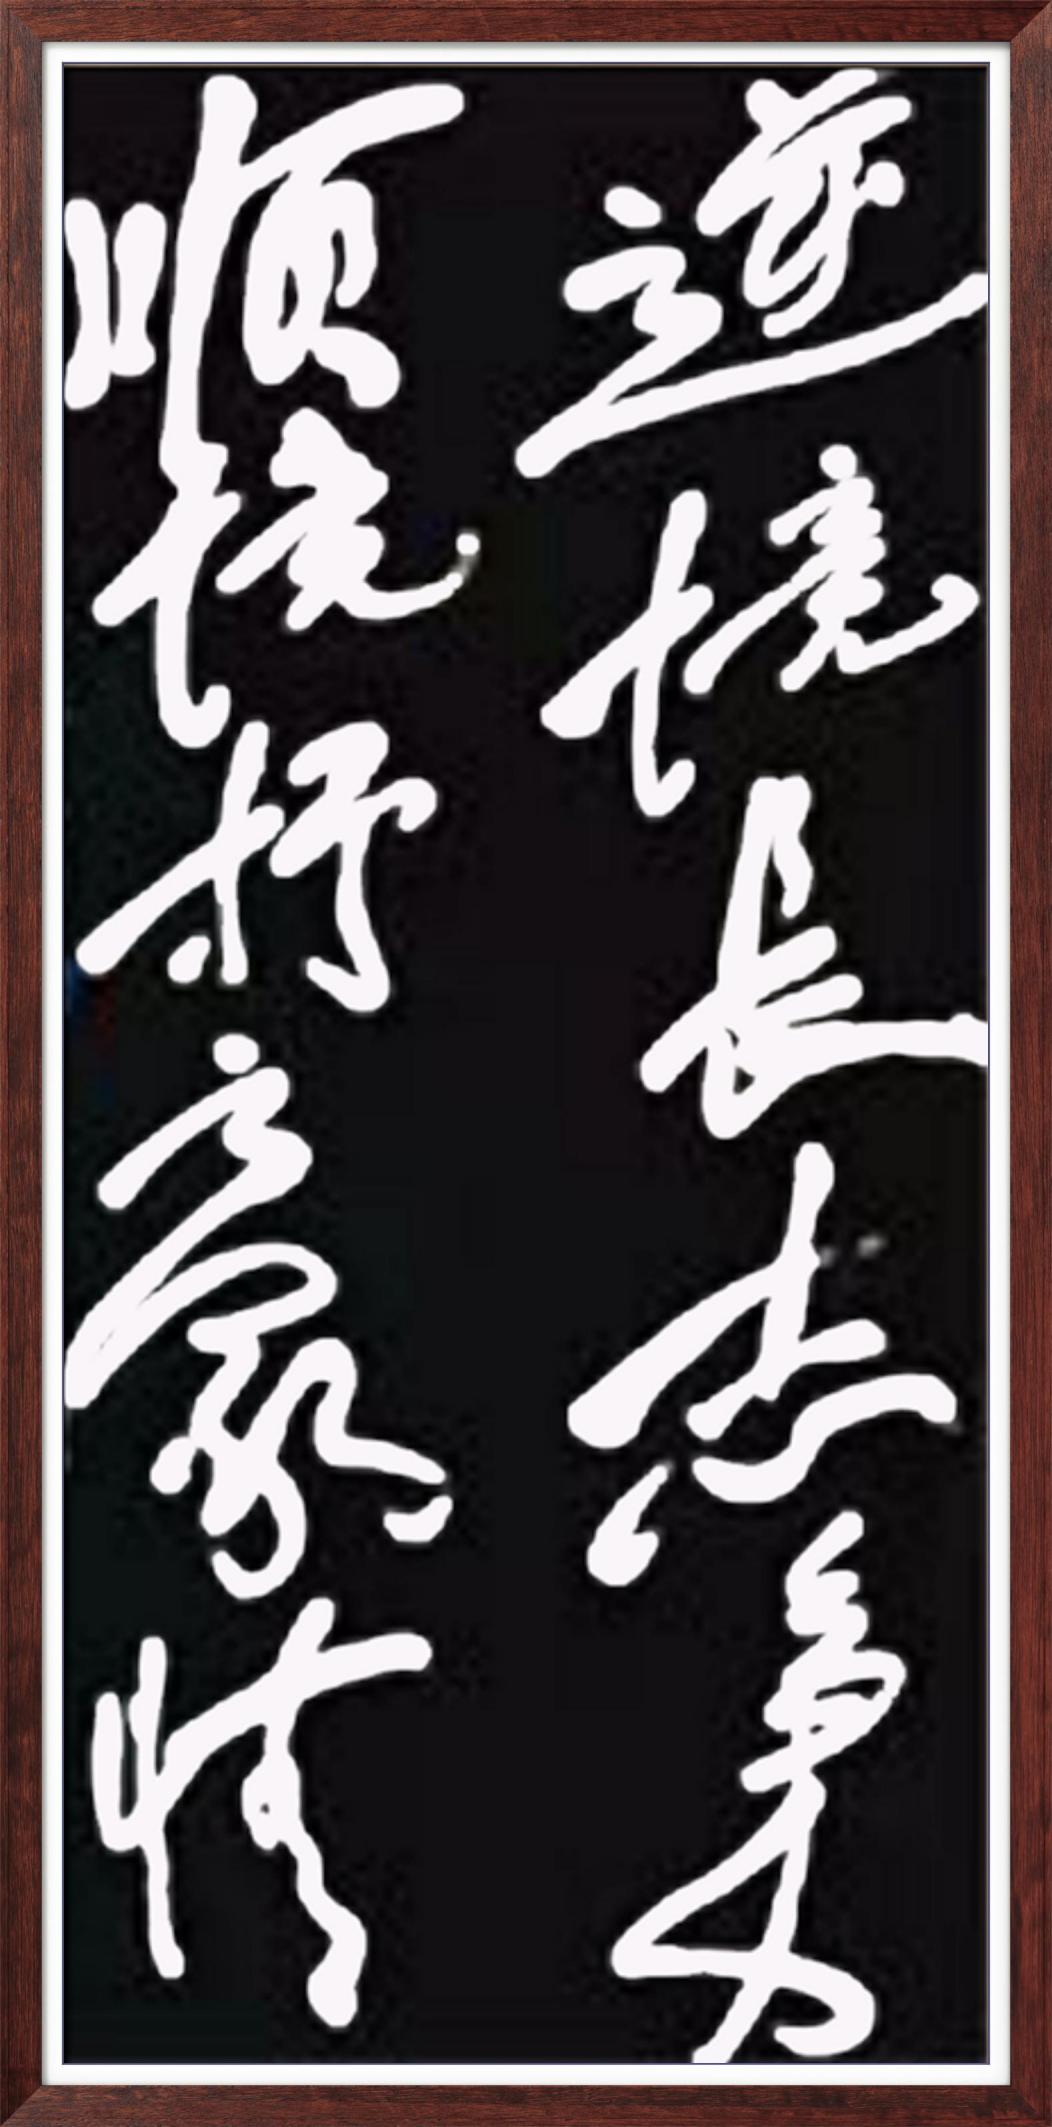 逆境長志勇
順境抒豪情